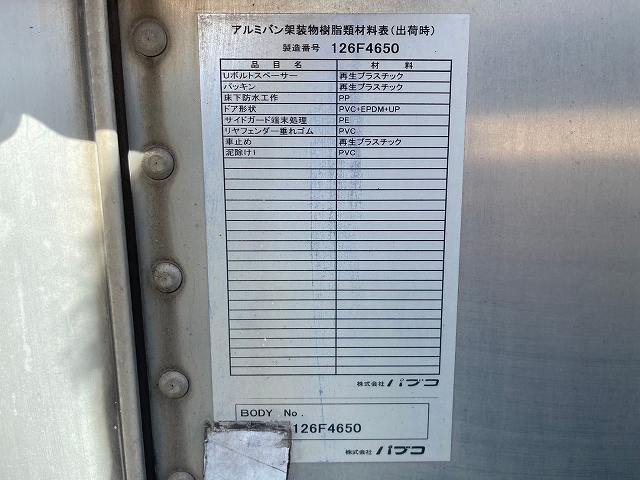 アルミバン架装物樹脂類材料表(出荷時)
製造番号 126F4650
品目名 材料
Uボルトスペーサー 再生プラスチック
パッキン 再生プラスチック
床下防水工作 PP
ドア形状 PVC+EPDM+UP
サイドガード端末処理 PE
リヤフェンダー垂れゴム PVC
車止め 再生プラスチック
泥除け1 PVC
株式会社 パブコ
BODY No.
126F4650
株式会社 パブコ